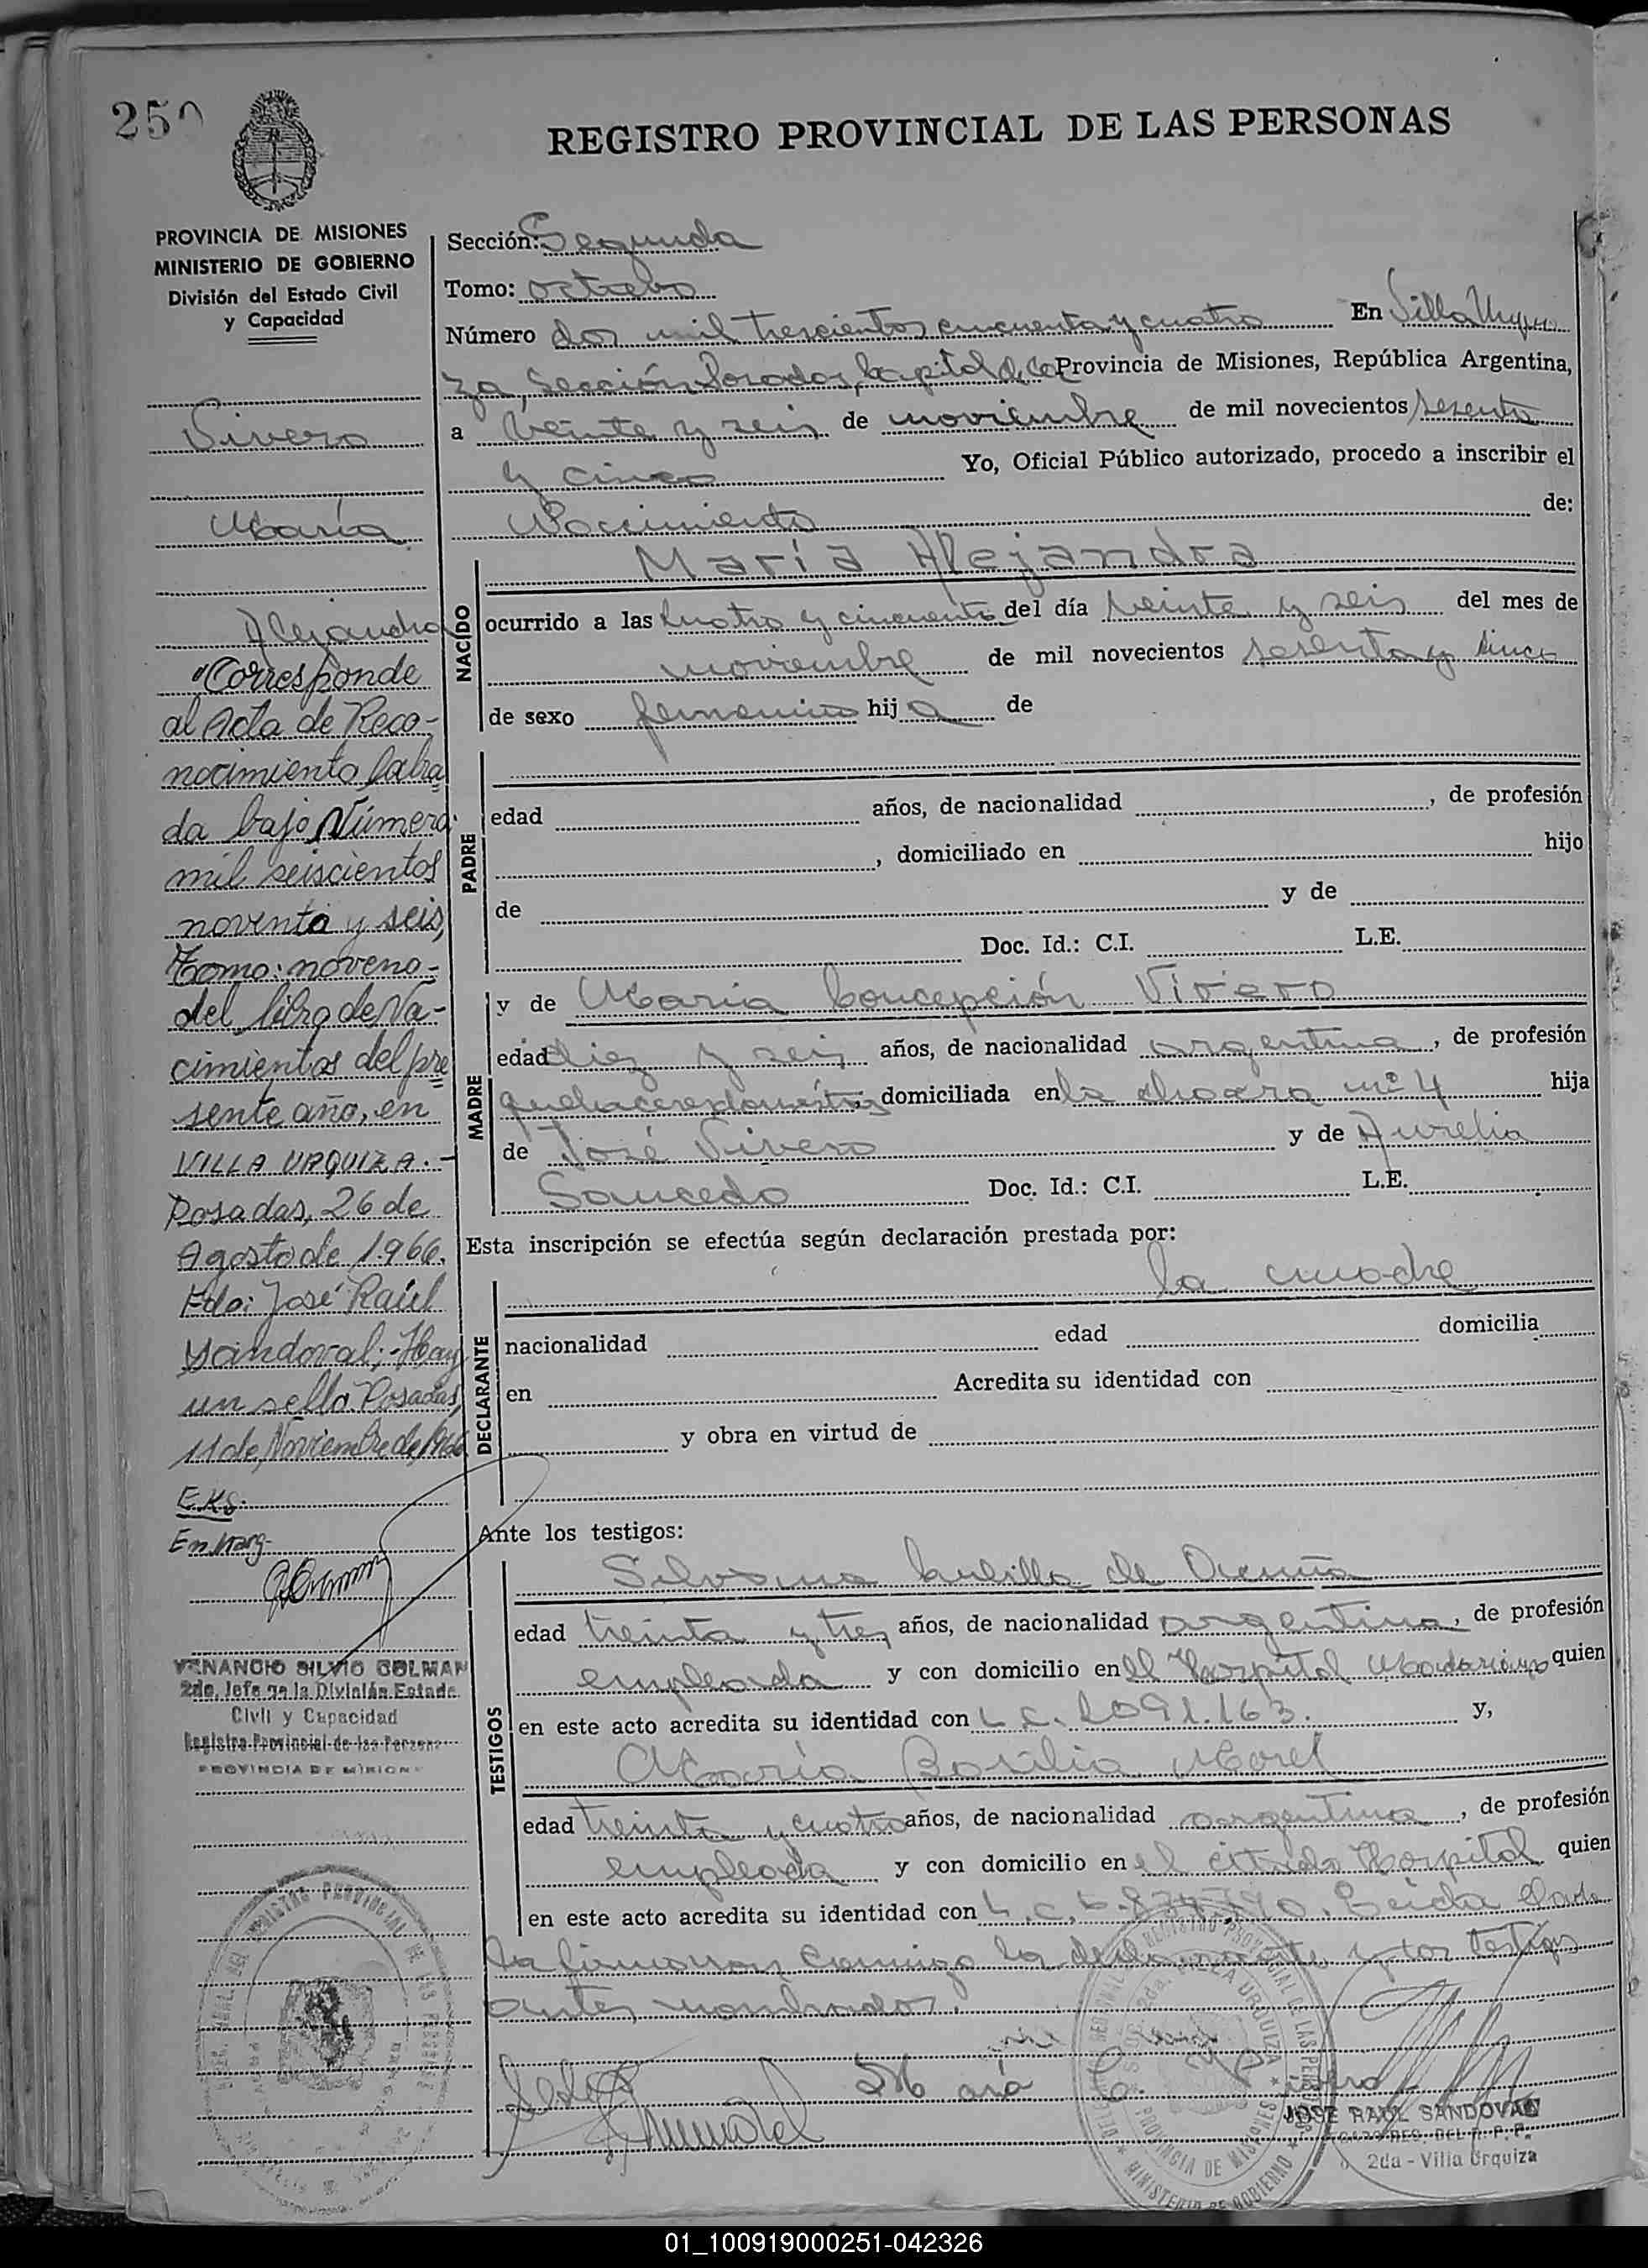 250
REGISTRO PROVINCIAL DE LAS PERSONAS
PROVINCIA DE MISIONES
MINISTERIO DE GOBIERNO
División del Estado Civil
y Capacidad
Vivero
María
Alejandra
"Corresponde
al Acta de Reco-
nocimiento labra
da bajo Número
mil seiscientos
noventa y seis,
Tomo: noveno-
del libro de Na-
cimientos del pre
sente año, en
VILLA URQUIZA.-
Posadas, 26 de
Agosto de 1.966.
Fdo: José Raúl
Sandoval;-Hay
un sello. Posadas,
11 de Noviembre de 1966
E.Ks.
En Marg-
VENANCIO SILVIO COLMAN
2do. Jefe de la División Estado
Civil y Capacidad
Registro Provincial de las Personas
PROVINCIA DE MISIONES
Sección: Segunda
Tomo: octavo
Número dos mil trescientos cincuenta y cuatro En Villa Urqui
za, Sección Posadas, Capital de la Provincia de Misiones, República Argentina,
a veinte y seis de noviembre de mil novecientos sesenta
y cinco Yo, Oficial Público autorizado, procedo a inscribir el
Nacimiento de:
NACIDO
María Alejandra
ocurrido a las cuatro y cincuenta del día veinte y seis del mes de
noviembre de mil novecientos sesenta y cinco
de sexo femenino hija de
PADRE
edad años, de nacionalidad , de profesión
, domiciliado en hijo
de y de
Doc. Id.: C.I. L.E.
MADRE
y de María Concepción Vivero
edad diez y seis años, de nacionalidad argentina, de profesión
quehaceres domésticos domiciliada en la chacra nº 4 hija
de José Vivero y de Aurelia
Saucedo Doc. Id.: C.I. L.E.
Esta inscripción se efectúa según declaración prestada por:
la madre
DECLARANTE
nacionalidad edad domicilia
en Acredita su identidad con
y obra en virtud de
Ante los testigos:
TESTIGOS
Silvana de
edad treinta y tres años, de nacionalidad argentina, de profesión
empleada y con domicilio en el Hospital Madariaga quien
en este acto acredita su identidad con L.C. 2091.163. y,
María Basilia Morel
edad treinta y cuatro años, de nacionalidad argentina, de profesión
empleada y con domicilio en el citado Hospital quien
en este acto acredita su identidad con L.C. Leida el acta
la firmaron conmigo la declarante y los testigos
antes nombrados.
María
JOSE RAUL SANDOVAL
2da - Villa Urquiza
01_100919000251-042326